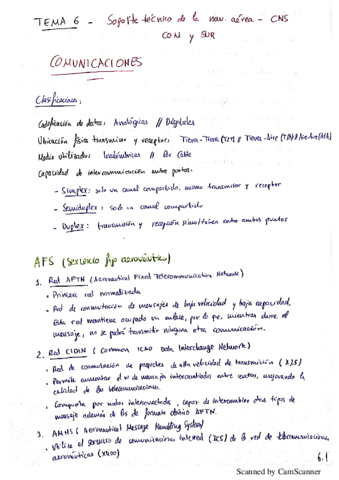 TEMA 6 - Soporte técnico de la nav. aérea - CNS
COM y SUR
COMUNICACIONES
Clasificaciones:
Codificación de datos: Analógicas // Digitales
Ubicación física transmisor y receptor: Tierra-Tierra (T/T) // Tierra-Aire (T/A) // Aire-Aire (A/A)
Medio utilizado: Inalámbricas // Por Cable
Capacidad de intercomunicación entre puntos:
- Simplex: solo un canal compartido, mismo transmisor y receptor
- Semiduplex: solo un canal compartido
- Duplex: transmisión y recepción simultánea entre ambos puntos
AFS (servicio fijo aeronáutico)
1. Red AFTN (Aeronautical Fixed Telecommunication Network)
• Primera red normalizada
• Red de conmutación de mensajes de baja velocidad y baja capacidad.
Esta red mantiene ocupado un enlace, por lo que, mientras dure el
mensaje, no se podrá transmitir ninguna otra comunicación.
2. Red CIDIN (Common ICAO Data Interchange Network)
• Red de conmutación de paquetes de alta velocidad de transmisión (X25)
• Permite aumentar el nº de mensajes intercambiados entre centros, mejorando la
calidad de las telecomunicaciones
• Compuesta por nodos interconectados, capaz de intercambiar otros tipos de
mensaje además de los de formato AFTN.
3. AMHS (Aeronautical Message Handling System)
• Utiliza el servicio de comunicaciones (ICS) de la red de telecomunicaciones
aeronáuticas (X400)
6.1
Scanned by CamScanner